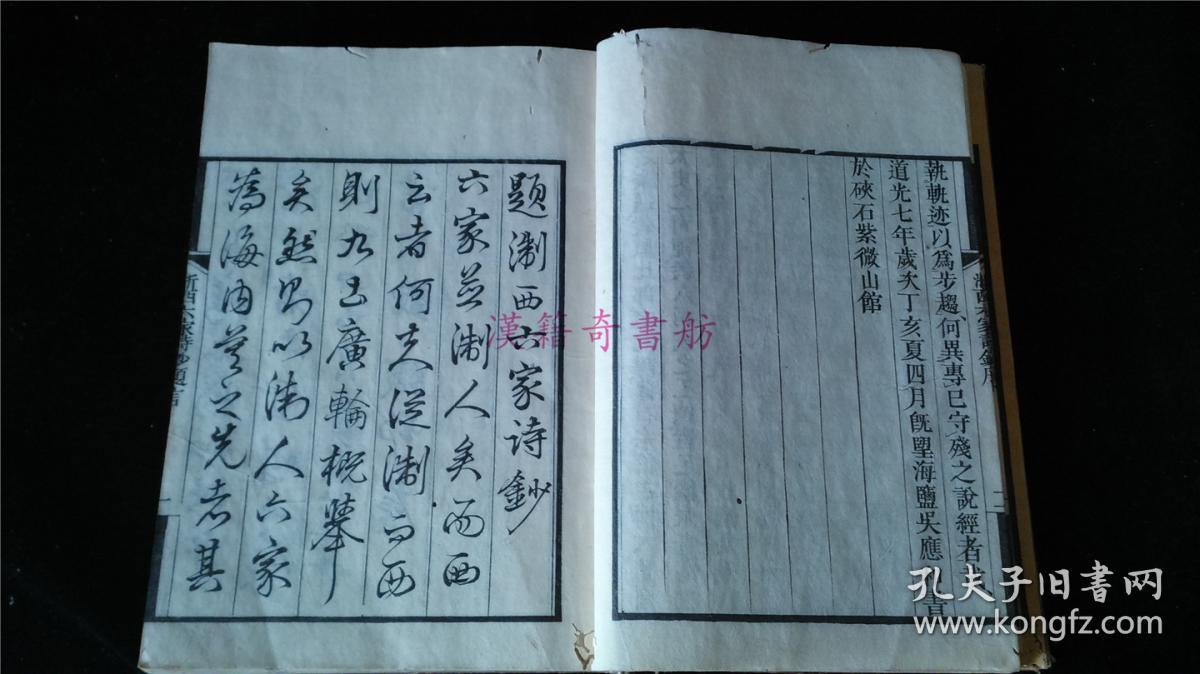 執軌迹以為步趨何異專已守殘之說經者
道光七年歲次丁亥夏四月旣朢海鹽吳應
於硤石紫微山館
題淛西六家詩鈔
六家並淛人矣而西
云者何失從淛而西
則九土廣輪概舉
矣然即以淛人六家
為海內莫之先者其
浙西六家詩鈔題言
一
漢籍奇書舫
孔夫子旧书网
www.kongfz.com